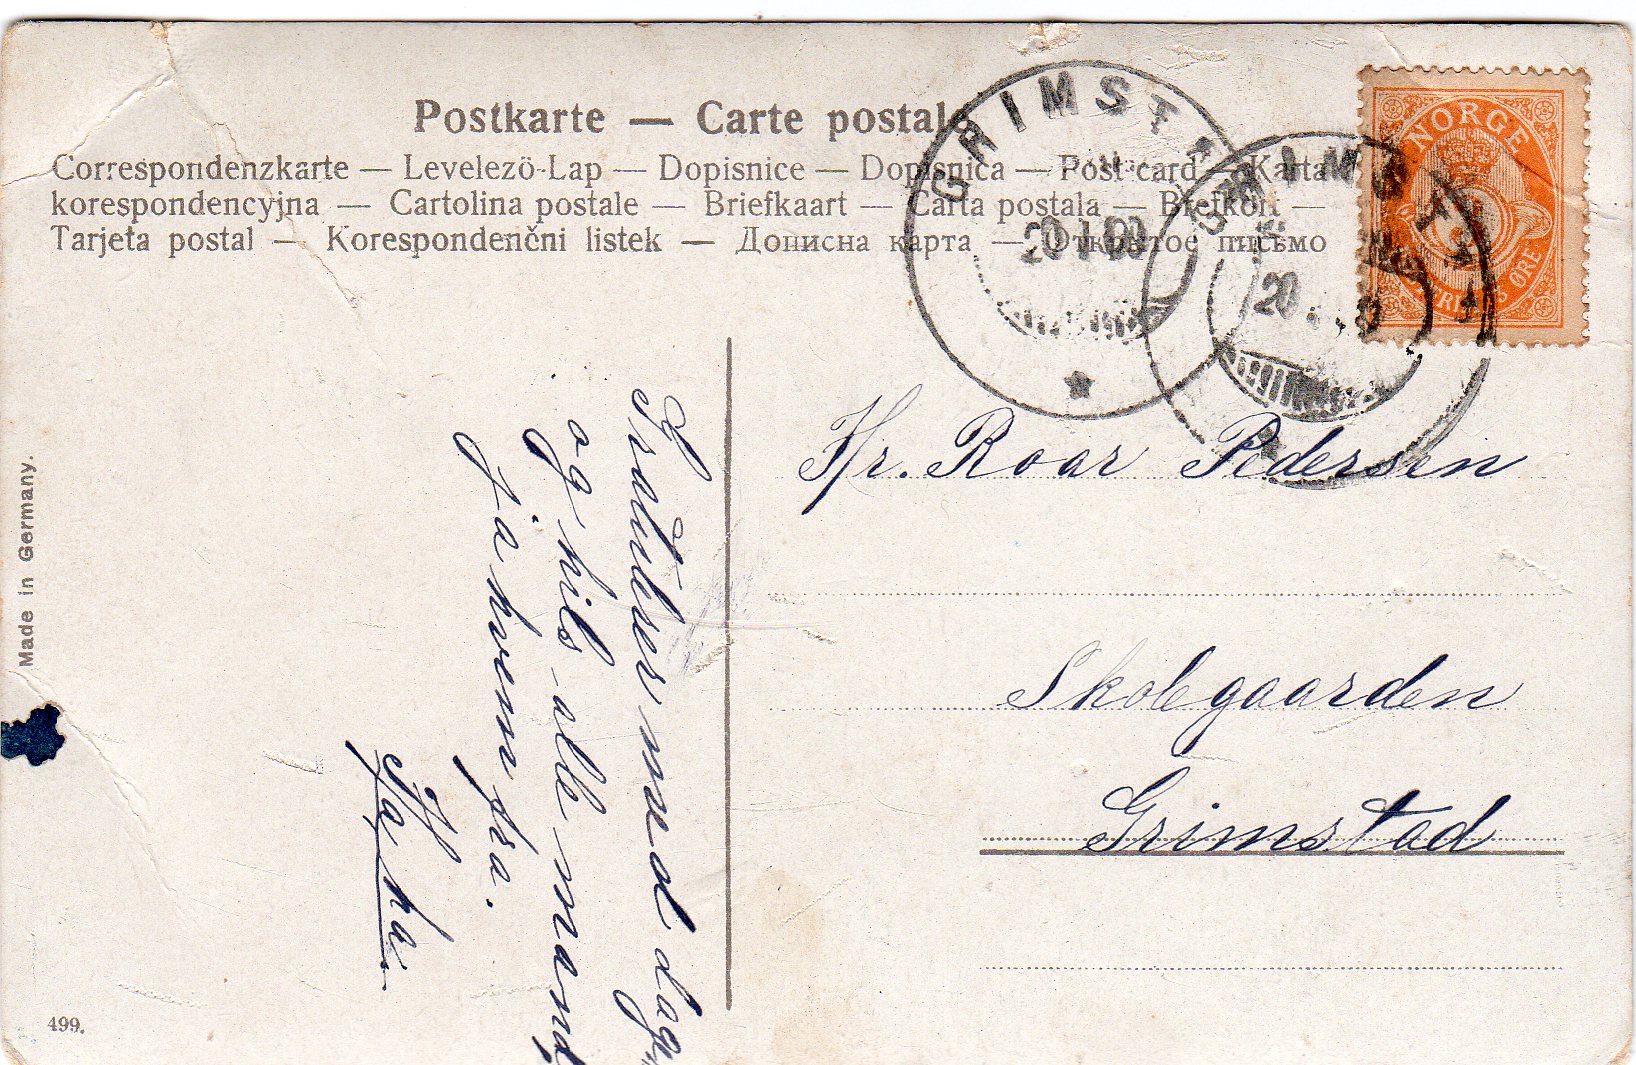 Postkarte — Carte postale
Correspondenzkarte — Levelező-Lap — Dopisnice — Dopisnica — Post card — Karta
korespondencyjna — Cartolina postale — Briefkaart — Carta postala — Brefkort —
Tarjeta postal — Korespondenčni listek — Дописна карта — Открытое письмо
GRIMSTAD
20 I 09
GRIMSTAD
20
NORGE
ØRE
Hr. Roar Pedersen
Skolegaarden
Grimstad
Gratulerer med dag
og hils alle mand,
ja hvem fra.
Made in Germany.
499.